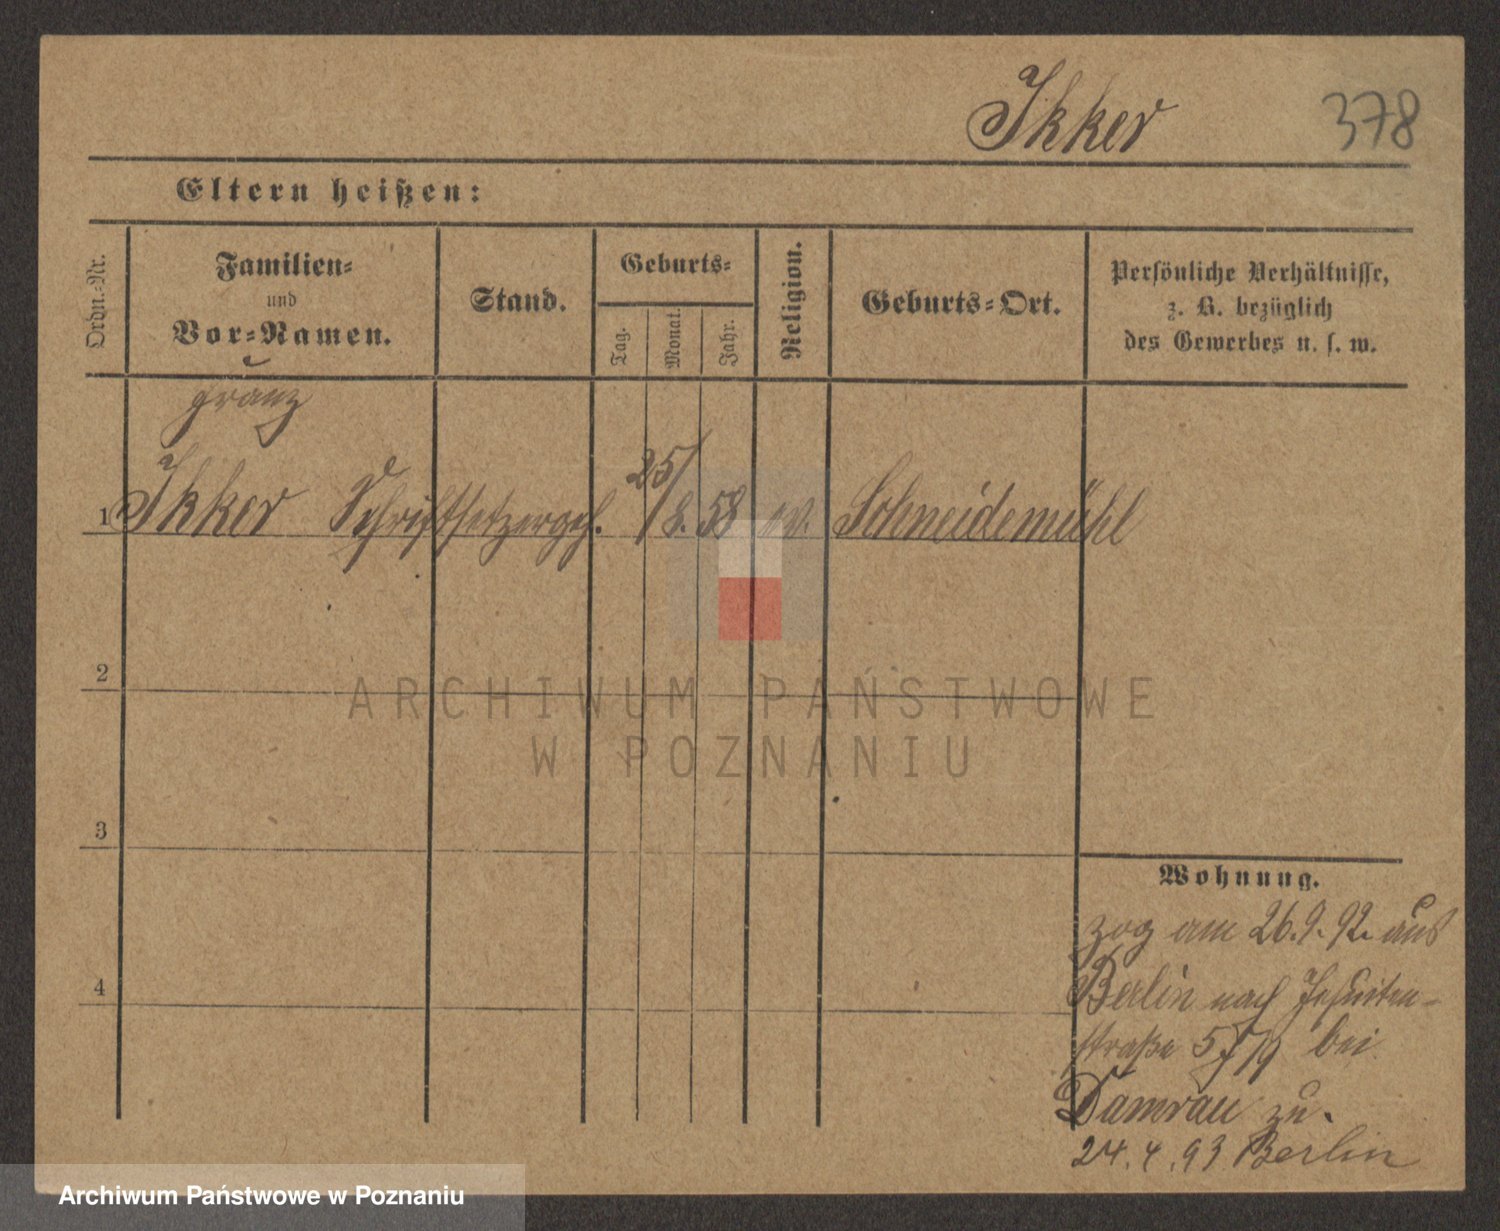 Ikker 378
Eltern heißen:
Ordn.-Nr.
Familien-
und
Vor-Namen.
Stand.
Geburts-
Tag.
Monat.
Jahr.
Religion.
Geburts-Ort.
Persönliche Verhältnisse,
z. B. bezüglich
des Gewerbes u. s. w.
Franz
1 Ikker Schriftsetzergeh. 25/8. 58 ev. Schneidemühl
2
3
4
Wohnung.
zog am 26.9.92. aus
Berlin nach Jesuiten-
straße 5 bei
Damrau zu.
24.4.93 Berlin
ARCHIWUM PAŃSTWOWE
W POZNANIU
Archiwum Państwowe w Poznaniu